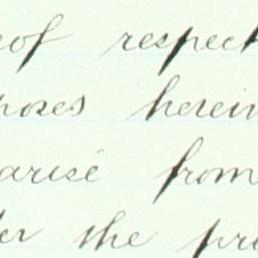 eof respect
poses herein
arise from
der the pro